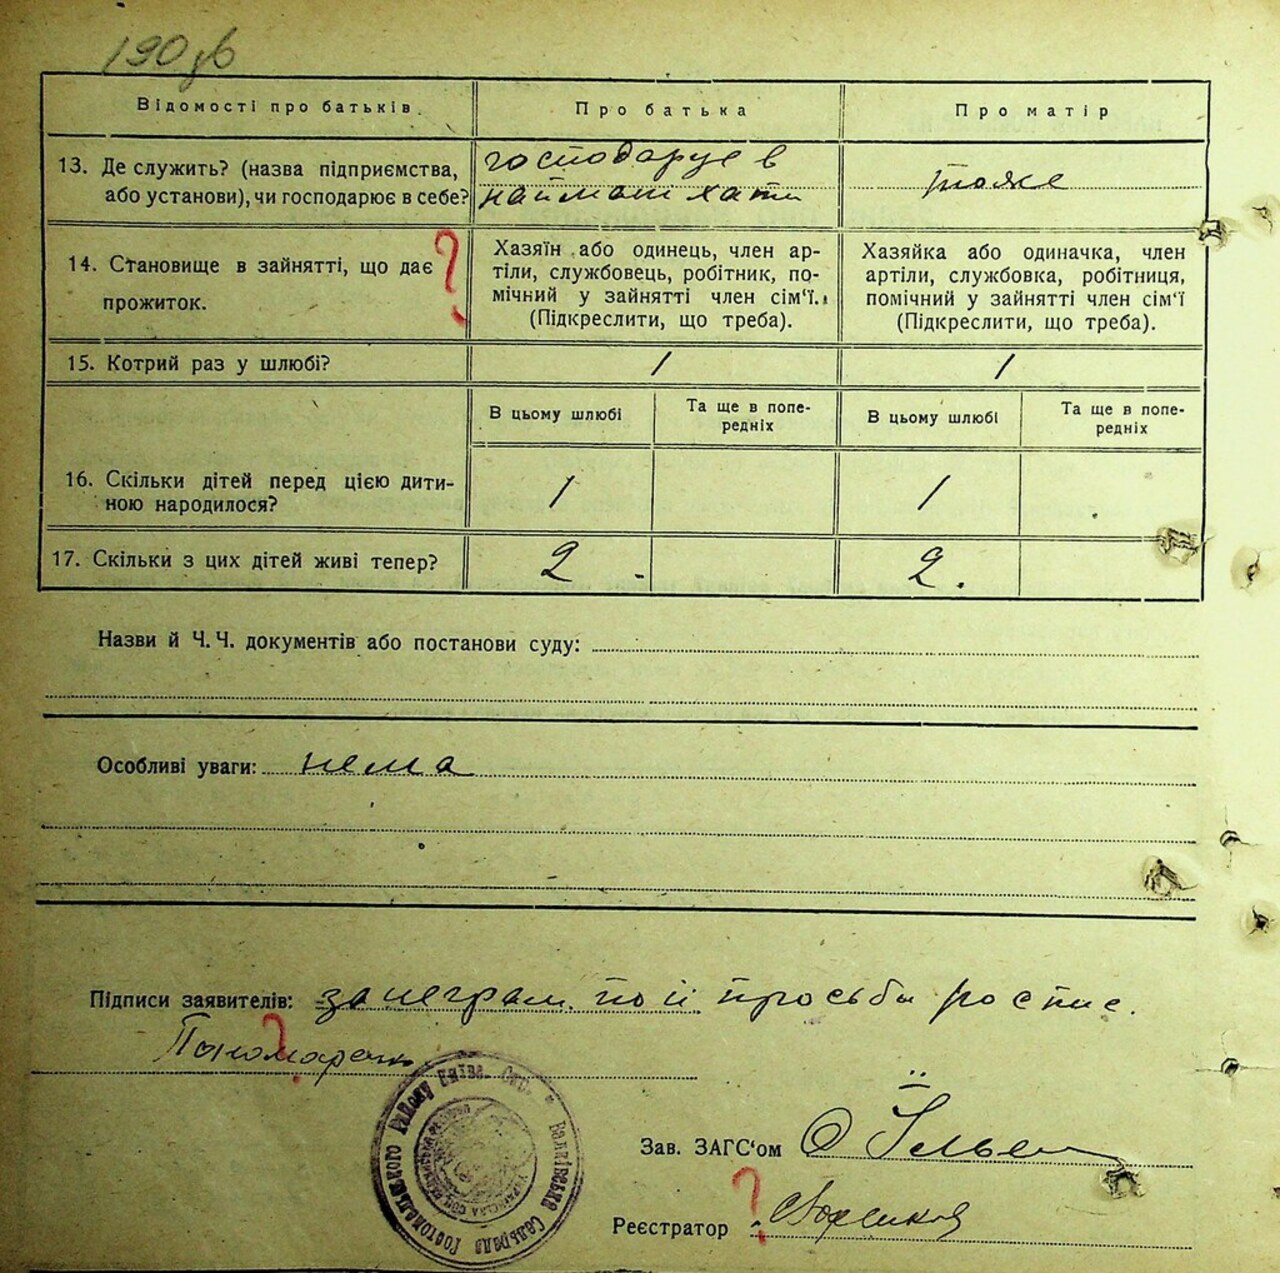 190 зв
Відомості про батьків.
Про батька
Про матір
13. Де служить? (назва підприємства,
або установи), чи господарює в себе?
господарує в
наймат хати
тоже
14. Становище в зайнятті, що дає
прожиток.
?
Хазяїн або одинець, член ар-
тіли, службовець, робітник, по-
мічний у зайнятті член сім'ї.
(Підкреслити, що треба).
Хазяйка або одиначка, член
артіли, службовка, робітниця,
помічний у зайнятті член сім'ї
(Підкреслити, що треба).
15. Котрий раз у шлюбі?
1
1
В цьому шлюбі
Та ще в попе-
редніх
В цьому шлюбі
Та ще в попе-
редніх
16. Скільки дітей перед цією дити-
ною народилося?
1
1
17. Скільки з цих дітей живі тепер?
2
2.
Назви й Ч.Ч. документів або постанови суду:
Особливі уваги: нема
Підписи заявителів: за неграм. по її просьби роспис.
?
Зав. ЗАГС'ом
Реєстратор ?